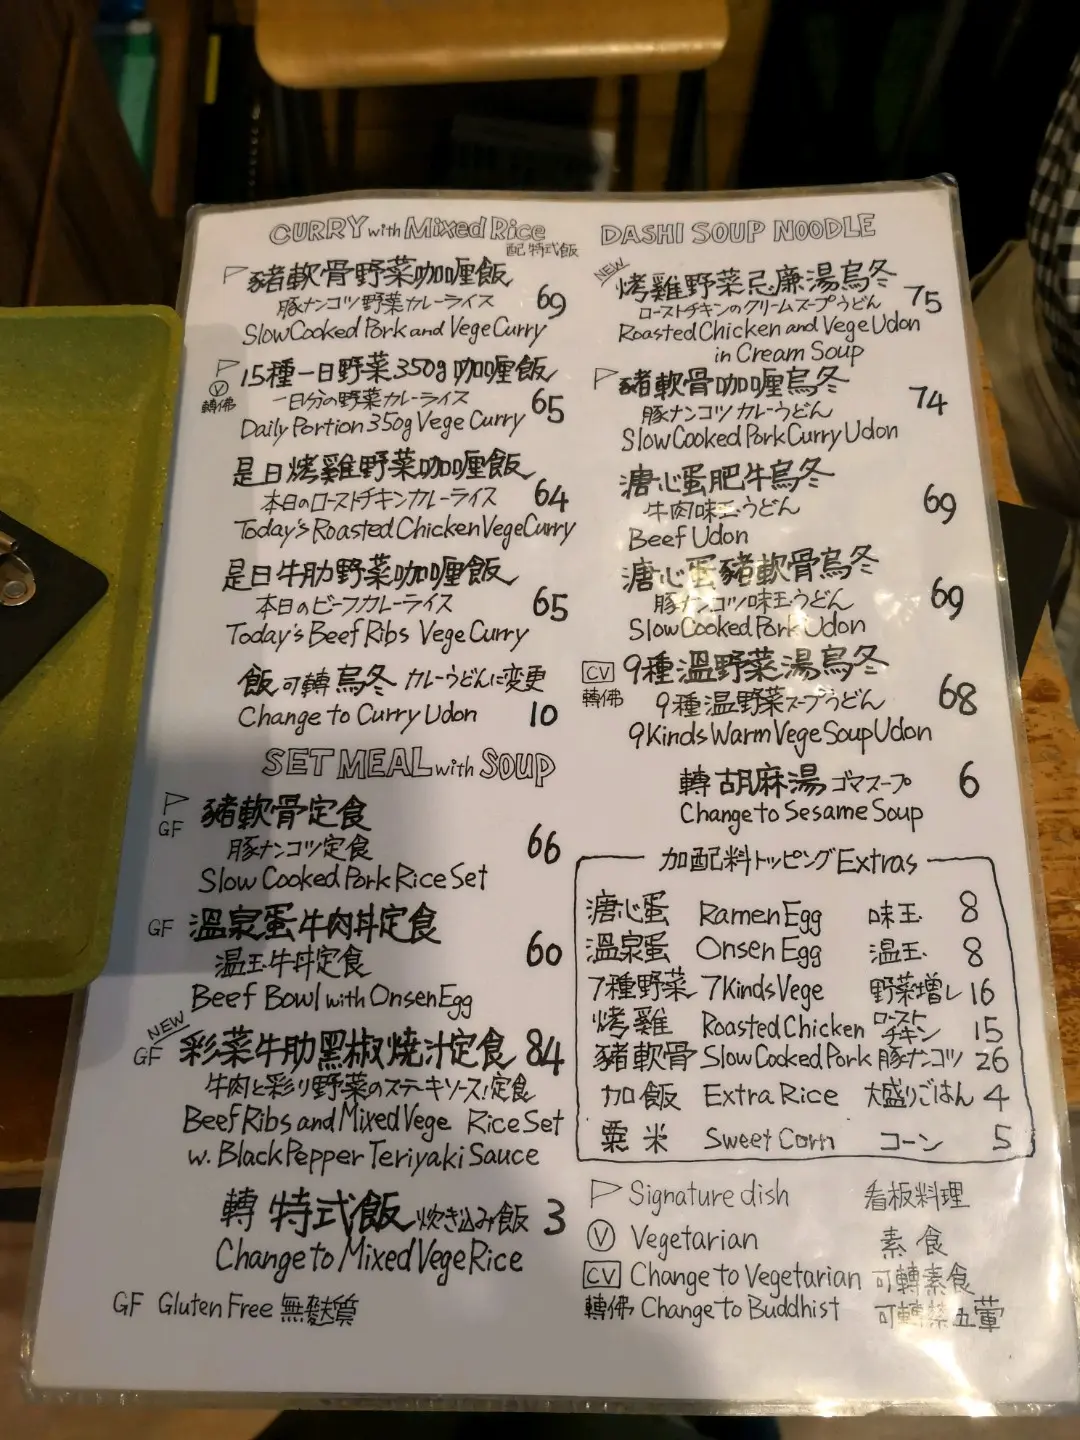 CURRY with Mixed Rice
配特式飯
豬軟骨野菜咖喱飯
豚ナンコツ野菜カレーライス 69
Slow Cooked Pork and Vege Curry
15種一日野菜350g咖喱飯
V
轉佛
一日分の野菜カレーライス 65
Daily Portion 350g Vege Curry
是日烤雞野菜咖喱飯
本日のローストチキンカレーライス 64
Today's Roasted Chicken Vege Curry
是日牛肋野菜咖喱飯
本日のビーフカレーライス 65
Today's Beef Ribs Vege Curry
飯可轉烏冬 カレーうどんに変更
Change to Curry Udon 10
SET MEAL with SOUP
豬軟骨定食
GF
豚ナンコツ定食 66
Slow Cooked Pork Rice Set
GF 溫泉蛋牛肉丼定食
温玉牛丼定食 60
Beef Bowl with Onsen Egg
NEW
GF 彩菜牛肋黑椒燒汁定食 84
牛肉と彩り野菜のステーキソース!定食
Beef Ribs and Mixed Vege Rice Set
w. Black Pepper Teriyaki Sauce
轉 特式飯 炊き込み飯 3
Change to Mixed Vege Rice
GF Gluten Free 無麩質
DASHI SOUP NOODLE
NEW
烤雞野菜忌廉湯烏冬 75
ローストチキンのクリームスープうどん
Roasted Chicken and Vege Udon
in Cream Soup
豬軟骨咖喱烏冬
豚ナンコツカレーうどん 74
Slow Cooked Pork Curry Udon
溏心蛋肥牛烏冬
牛肉味玉うどん 69
Beef Udon
溏心蛋豬軟骨烏冬
豚ナンコツ味玉うどん 69
Slow Cooked Pork Udon
CV 9種溫野菜湯烏冬
轉佛 9種温野菜スープうどん 68
9 Kinds Warm Vege Soup Udon
轉胡麻湯 ゴマスープ 6
Change to Sesame Soup
加配料トッピング Extras
溏心蛋 Ramen Egg 味玉 8
溫泉蛋 Onsen Egg 温玉 8
7種野菜 7 Kinds Vege 野菜増し 16
烤雞 Roasted Chicken ローストチキン 15
豬軟骨 Slow Cooked Pork 豚ナンコツ 26
加飯 Extra Rice 大盛りごはん 4
粟米 Sweet Corn コーン 5
Signature dish 看板料理
V Vegetarian 素食
CV Change to Vegetarian 可轉素食
轉佛 Change to Buddhist 可轉禁五葷